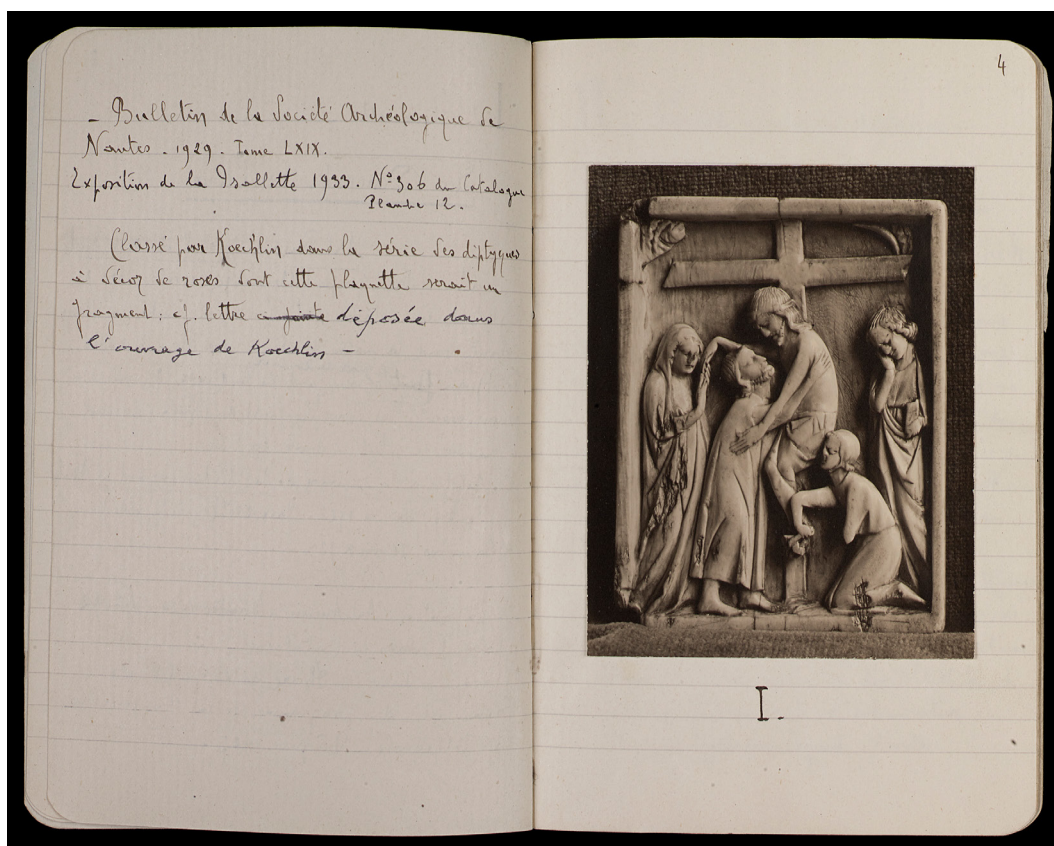 - Bulletin de la Société Archéologique de
Nantes. 1929. Tome LXIX.
Exposition de la Psallette 1933. N° 306 du Catalogue
Planche 12.
Classé par Koechlin dans la série des diptyques
à décor de roses dont cette plaquette serait un
fragment: cf. lettre déposée dans
l'ouvrage de Koechlin -
4
I.